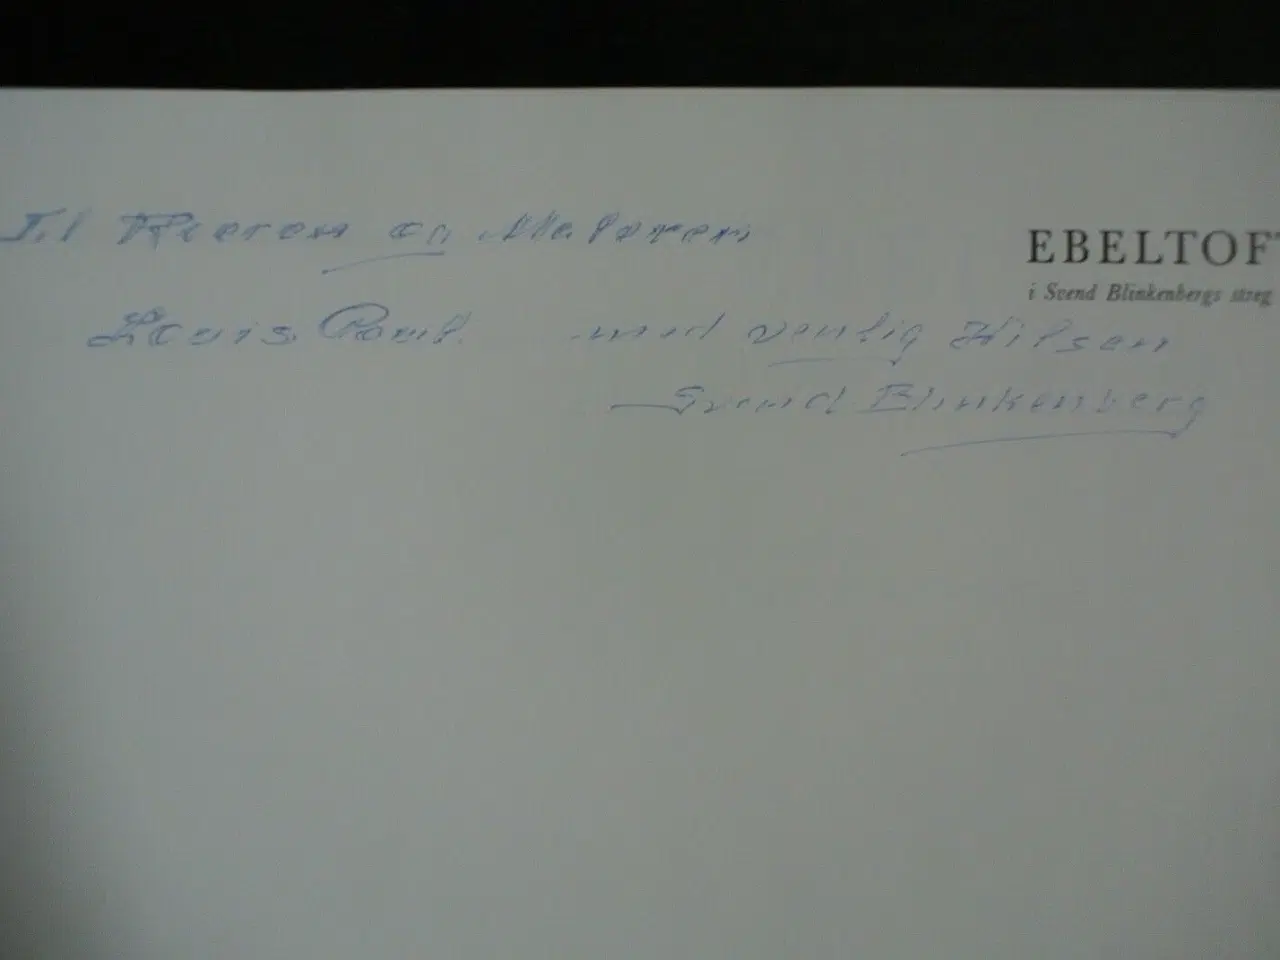 Til og Maleren
EBELTOFT
i Svend Blinkenbergs streg
Louis med venlig Hilsen
Svend Blinkenberg